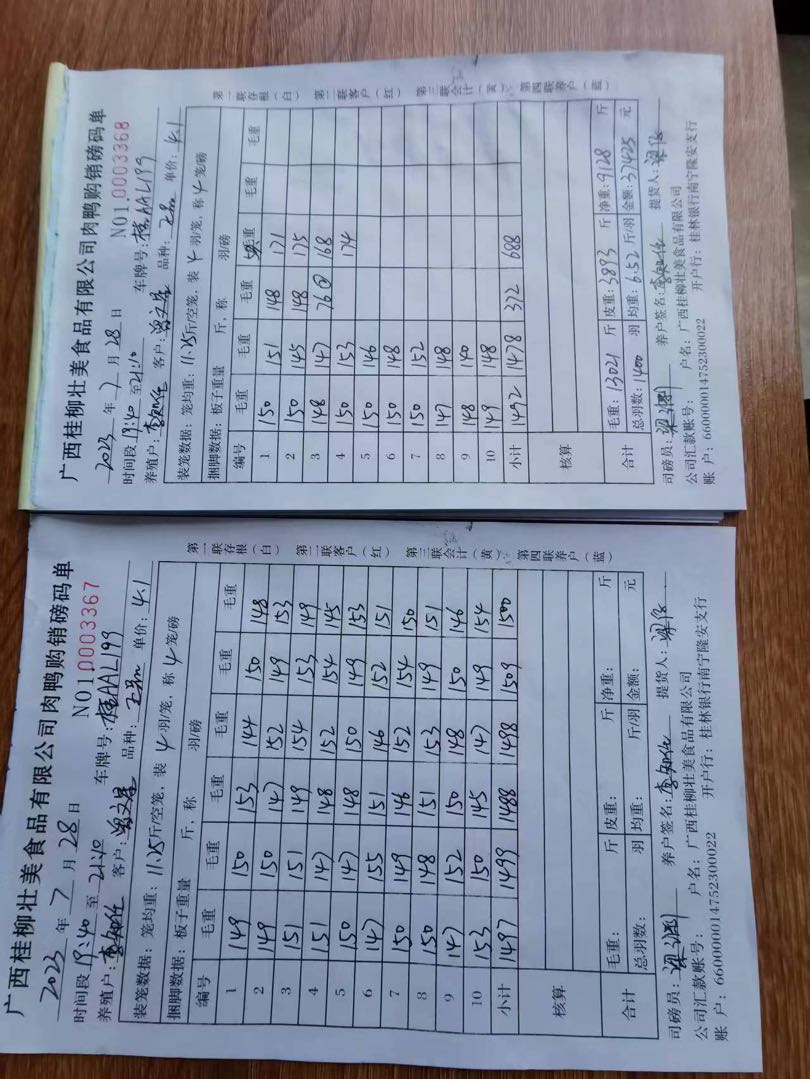 广西桂柳壮美食品有限公司肉鸭购销磅码单
2023 年 7 月 28 日 NO1.0003367
时间段 19:40 至 21:10 车牌号: 桂AAL199
养殖户: 客户: 品种: 单价: 4.1
装笼数据: 笼均重: 11.25 斤/空笼, 装 4 羽/笼, 称 4 笼/磅
捆脚数据: 板子重量 斤, 称 羽/磅
编号 毛重 毛重 毛重 毛重 毛重 毛重
1 149 150 153 144 150 148
2 149 150 147 152 149 153
3 151 151 149 154 153 149
4 151 147 148 152 154 145
5 150 147 148 150 149 153
6 147 155 151 146 152 151
7 150 149 146 152 154 150
8 150 148 151 153 149 151
9 147 152 150 148 150 146
10 153 150 145 147 149 154
小计 1497 1499 1488 1498 1509 1500
核算
合计 毛重: 斤 皮重: 斤 净重: 斤
总羽数: 羽 均重: 斤/羽 金额: 元
司磅员: 养户签名: 提货人:
公司汇款账号: 户名: 广西桂柳壮美食品有限公司
账 户: 660000014752300022 开户行: 桂林银行南宁隆安支行
第一联存根(白) 第二联客户(红) 第三联会计(黄) 第四联养户(蓝)
广西桂柳壮美食品有限公司肉鸭购销磅码单
2023 年 7 月 28 日 NO1.0003368
时间段 19:40 至 21:10 车牌号: 桂AAL199
养殖户: 客户: 品种: 单价: 4.1
装笼数据: 笼均重: 11.25 斤/空笼, 装 4 羽/笼, 称 4 笼/磅
捆脚数据: 板子重量 斤, 称 羽/磅
编号 毛重 毛重 毛重 毛重 毛重 毛重
1 150 151 148 171
2 150 145 148 175
3 148 147 76② 168
4 150 153 174
5 150 146
6 150 148
7 150 152
8 147 148
9 148 140
10 149 148
小计 1492 1478 372 688
核算
合计 毛重: 13021 斤 皮重: 3893 斤 净重: 9128 斤
总羽数: 1400 羽 均重: 6.52 斤/羽 金额: 37425 元
司磅员: 养户签名: 提货人:
公司汇款账号: 户名: 广西桂柳壮美食品有限公司
账 户: 660000014752300022 开户行: 桂林银行南宁隆安支行
第一联存根(白) 第二联客户(红) 第三联会计(黄) 第四联养户(蓝)